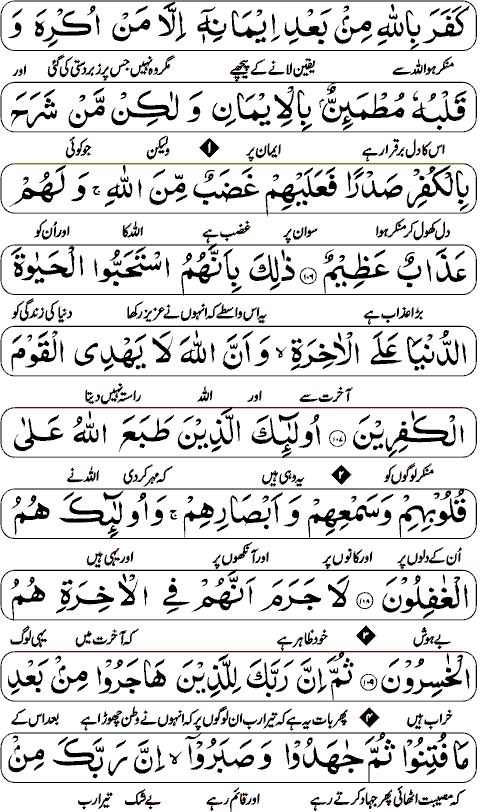 كَفَرَ بِاللّٰهِ مِنْۢ بَعْدِ اِيْمَانِهٖٓ اِلَّا مَنْ اُكْرِهَ وَ
منکر ہوا اللہ سے یقین لانے کے پیچھے مگر وہ نہیں جس پر زبردستی کی گئی اور
قَلْبُهٗ مُطْمَئِنٌّۢ بِالْاِيْمَانِ وَلٰكِنْ مَّنْ شَرَحَ
اس کا دل برقرار ہے ایمان پر ۱ ولیکن جو کوئی
بِالْكُفْرِ صَدْرًا فَعَلَيْهِمْ غَضَبٌ مِّنَ اللّٰهِ ۚ وَلَهُمْ
دل کھول کر منکر ہوا سو ان پر غضب ہے اللہ کا اور اُن کو
عَذَابٌ عَظِيْمٌ ۝۱۰۶ ذٰلِكَ بِاَنَّهُمُ اسْتَحَبُّوا الْحَيٰوةَ
بڑا عذاب ہے یہ اس واسطے کہ انہوں نے عزیز رکھا دنیا کی زندگی کو
الدُّنْيَا عَلَى الْاٰخِرَةِ ۙ وَاَنَّ اللّٰهَ لَا يَهْدِى الْقَوْمَ
آخرت سے اور اللہ راستہ نہیں دیتا
الْكٰفِرِيْنَ ۝۱۰۷ اُولٰٓئِكَ الَّذِيْنَ طَبَعَ اللّٰهُ عَلٰى
منکر لوگوں کو ۲ یہ وہی ہیں کہ مہر کر دی اللہ نے
قُلُوْبِهِمْ وَسَمْعِهِمْ وَاَبْصَارِهِمْ ۚ وَاُولٰٓئِكَ هُمُ
اُن کے دلوں پر اور کانوں پر اور آنکھوں پر اور یہی ہیں
الْغٰفِلُوْنَ ۝۱۰۸ لَا جَرَمَ اَنَّهُمْ فِى الْاٰخِرَةِ هُمُ
بے ہوش ۳ خود ظاہر ہے کہ آخرت میں یہی لوگ
الْخٰسِرُوْنَ ۝۱۰۹ ثُمَّ اِنَّ رَبَّكَ لِلَّذِيْنَ هَاجَرُوْا مِنْۢ بَعْدِ
خراب ہیں ۴ پھر بات یہ ہے کہ تیرا رب ان لوگوں پر کہ انہوں نے وطن چھوڑا ہے بعد اس کے
مَا فُتِنُوْا ثُمَّ جٰهَدُوْا وَصَبَرُوْٓا ۙ اِنَّ رَبَّكَ مِنْۢ
کہ مصیبت اٹھائی پھر جہاد کرتے رہے اور قائم رہے بے شک تیرا رب